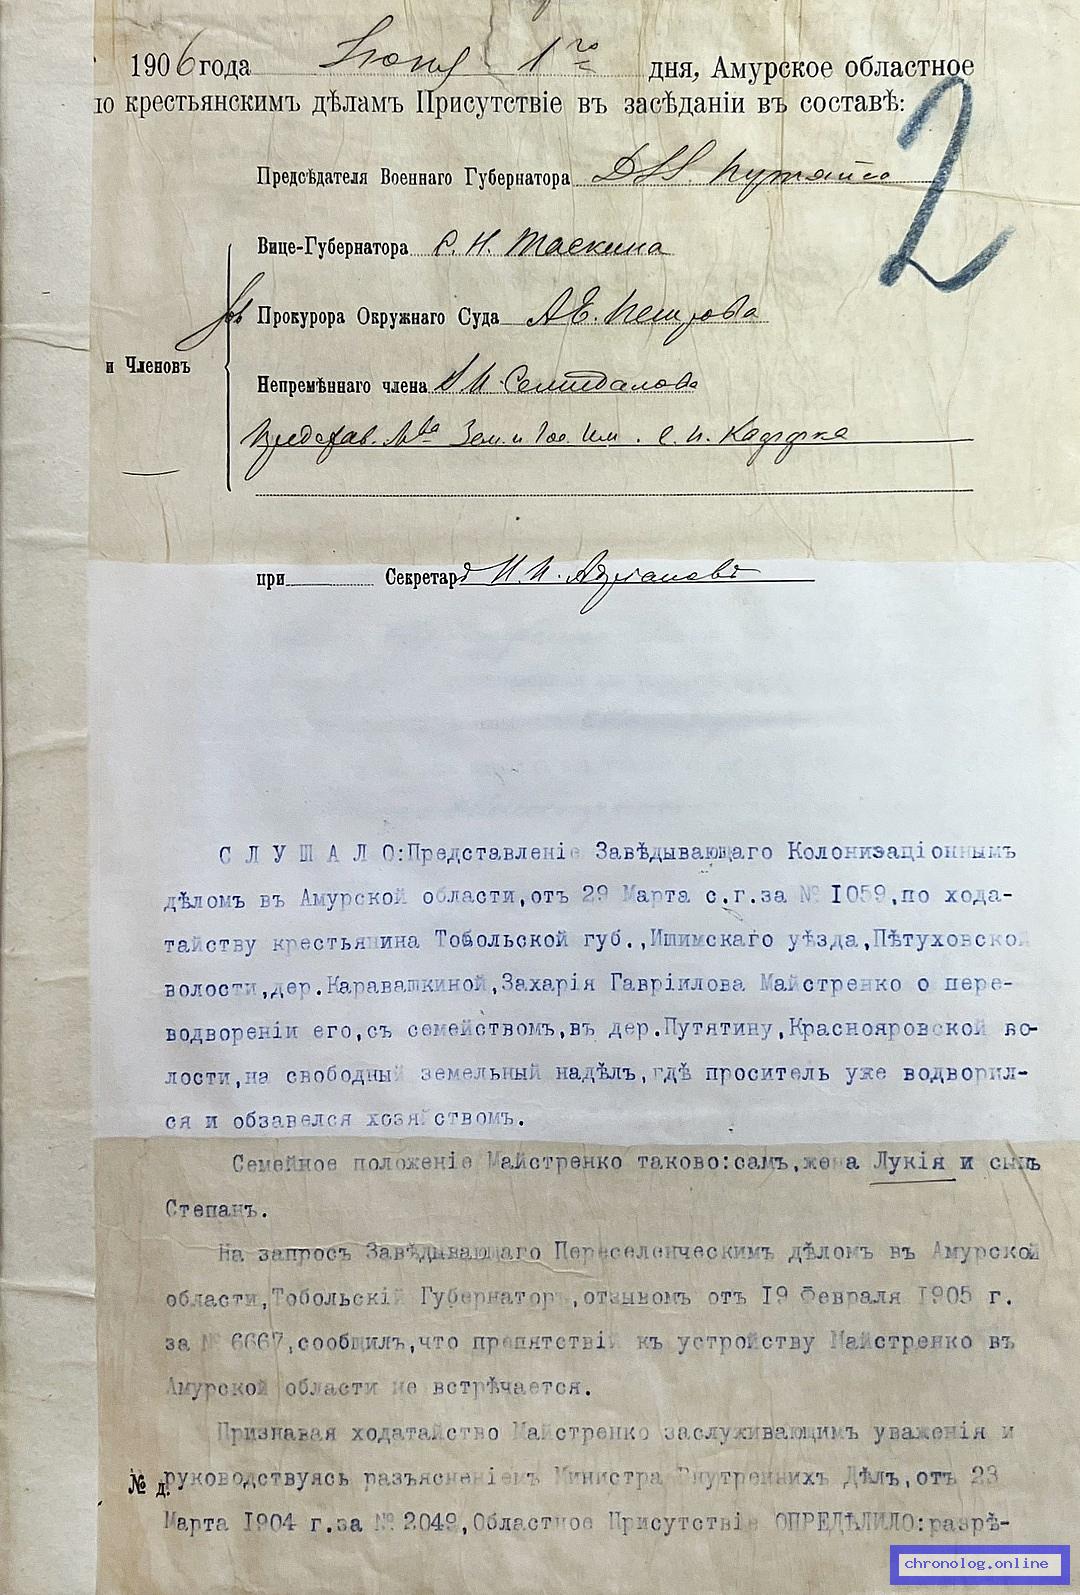 1906 года Июня 1го дня, Амурское областное
по крестьянскимъ дѣламъ Присутствіе въ засѣданіи въ составѣ:
2
Предсѣдателя Военнаго Губернатора Д.В. Путята
Вице-Губернатора С. Н. Таскина
Прокурора Окружнаго Суда А.Е. Петрова
и Членовъ
Непремѣннаго члена
Представ. М-ва Зем. и Гос. Им. С. П. Каффка
при Секретарѣ
С Л У Ш А Л О:Представленіе Завѣдывающаго Колонизаціоннымъ
дѣломъ въ Амурской области,отъ 29 Марта с.г.за № 1059,по хода-
тайству крестьянина Тобольской губ.,Ишимскаго уѣзда,Пѣтуховской
волости,дер.Каравашкиной,Захарія Гавріилова Майстренко о пере-
водвореніи его,съ семействомъ,въ дер.Путятину,Краснояровской во-
лости,на свободный земельный надѣлъ,гдѣ проситель уже водворил-
ся и обзавелся хозяйствомъ.
Семейное положеніе Майстренко таково:самъ,жена Лукія и сынъ
Степанъ.
На запросъ Завѣдывающаго Переселенческимъ дѣломъ въ Амурской
области,Тобольскій Губернаторъ,отзывомъ отъ 19 Февраля 1905 г.
за № 6667,сообщилъ,что препятствій къ устройству Майстренко въ
Амурской области не встрѣчается.
Признавая ходатайство Майстренко заслуживающимъ уваженія и
№ д. руководствуясь разъясненіемъ Министра Внутреннихъ Дѣлъ,отъ 23
Марта 1904 г.за № 2049,Областное Присутствіе ОПРЕДѢЛИЛО:разрѣ-
chronolog.online